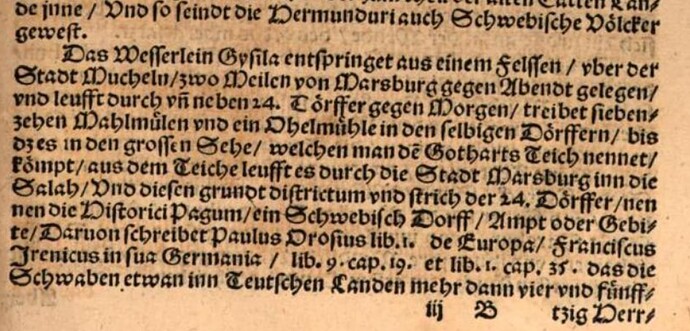 de jnne / Vnd so seindt die Hermunduri auch Schwebische Völcker
gewest.
Das Wesserlein Gysila entspringet aus einem Felssen / vber der
Stadt Mucheln / zwo Meilen von Marsburg gegen Abendt gelegen /
vnd leufft durch vn̄ neben 24. Dörffer gegen Morgen / treibet sieben⸗
zehen Mahlmülen vnd ein Ohelmühle in den selbigen Dörffern / bis
dz es in den grossen Sehe / welchen man dē Gotharts Teich nennet /
kömpt / aus dem Teiche leufft es durch die Stadt Marsburg inn die
Salah / Vnd diesen grundt districtum vnd strich der 24. Dörffer / nen
nen die Historici Pagum / ein Schwebisch Dorff / Ampt oder Gebi⸗
te / Daruon schreibet Paulus Orosius lib. 1. de Europa / Franciscus
Irenicus in sua Germania / lib. 9. cap. 19. et lib. 1. cap. 35. das die
Schwaben etwan inn Teutschen Landen mehr dann vier vnd fünff⸗
iij B tzig Herr⸗